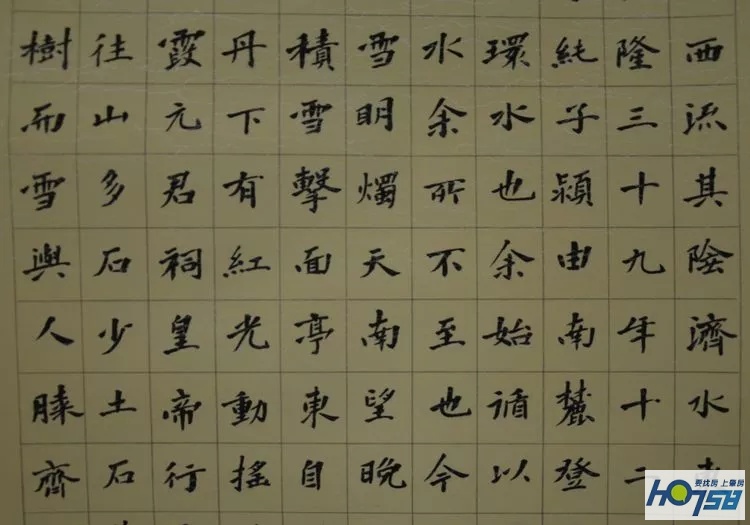 西流其陰濟水
隆三十九年十二
純子潁由南麓登
環水也余始循以
水余所不至也今
雪明燭天南望晚
積雪擊面亭東自
丹下有紅光動搖
霞元君祠皇帝行
往山多石少土石
樹而雪與人膝齊
要找房 上肇房
HO758